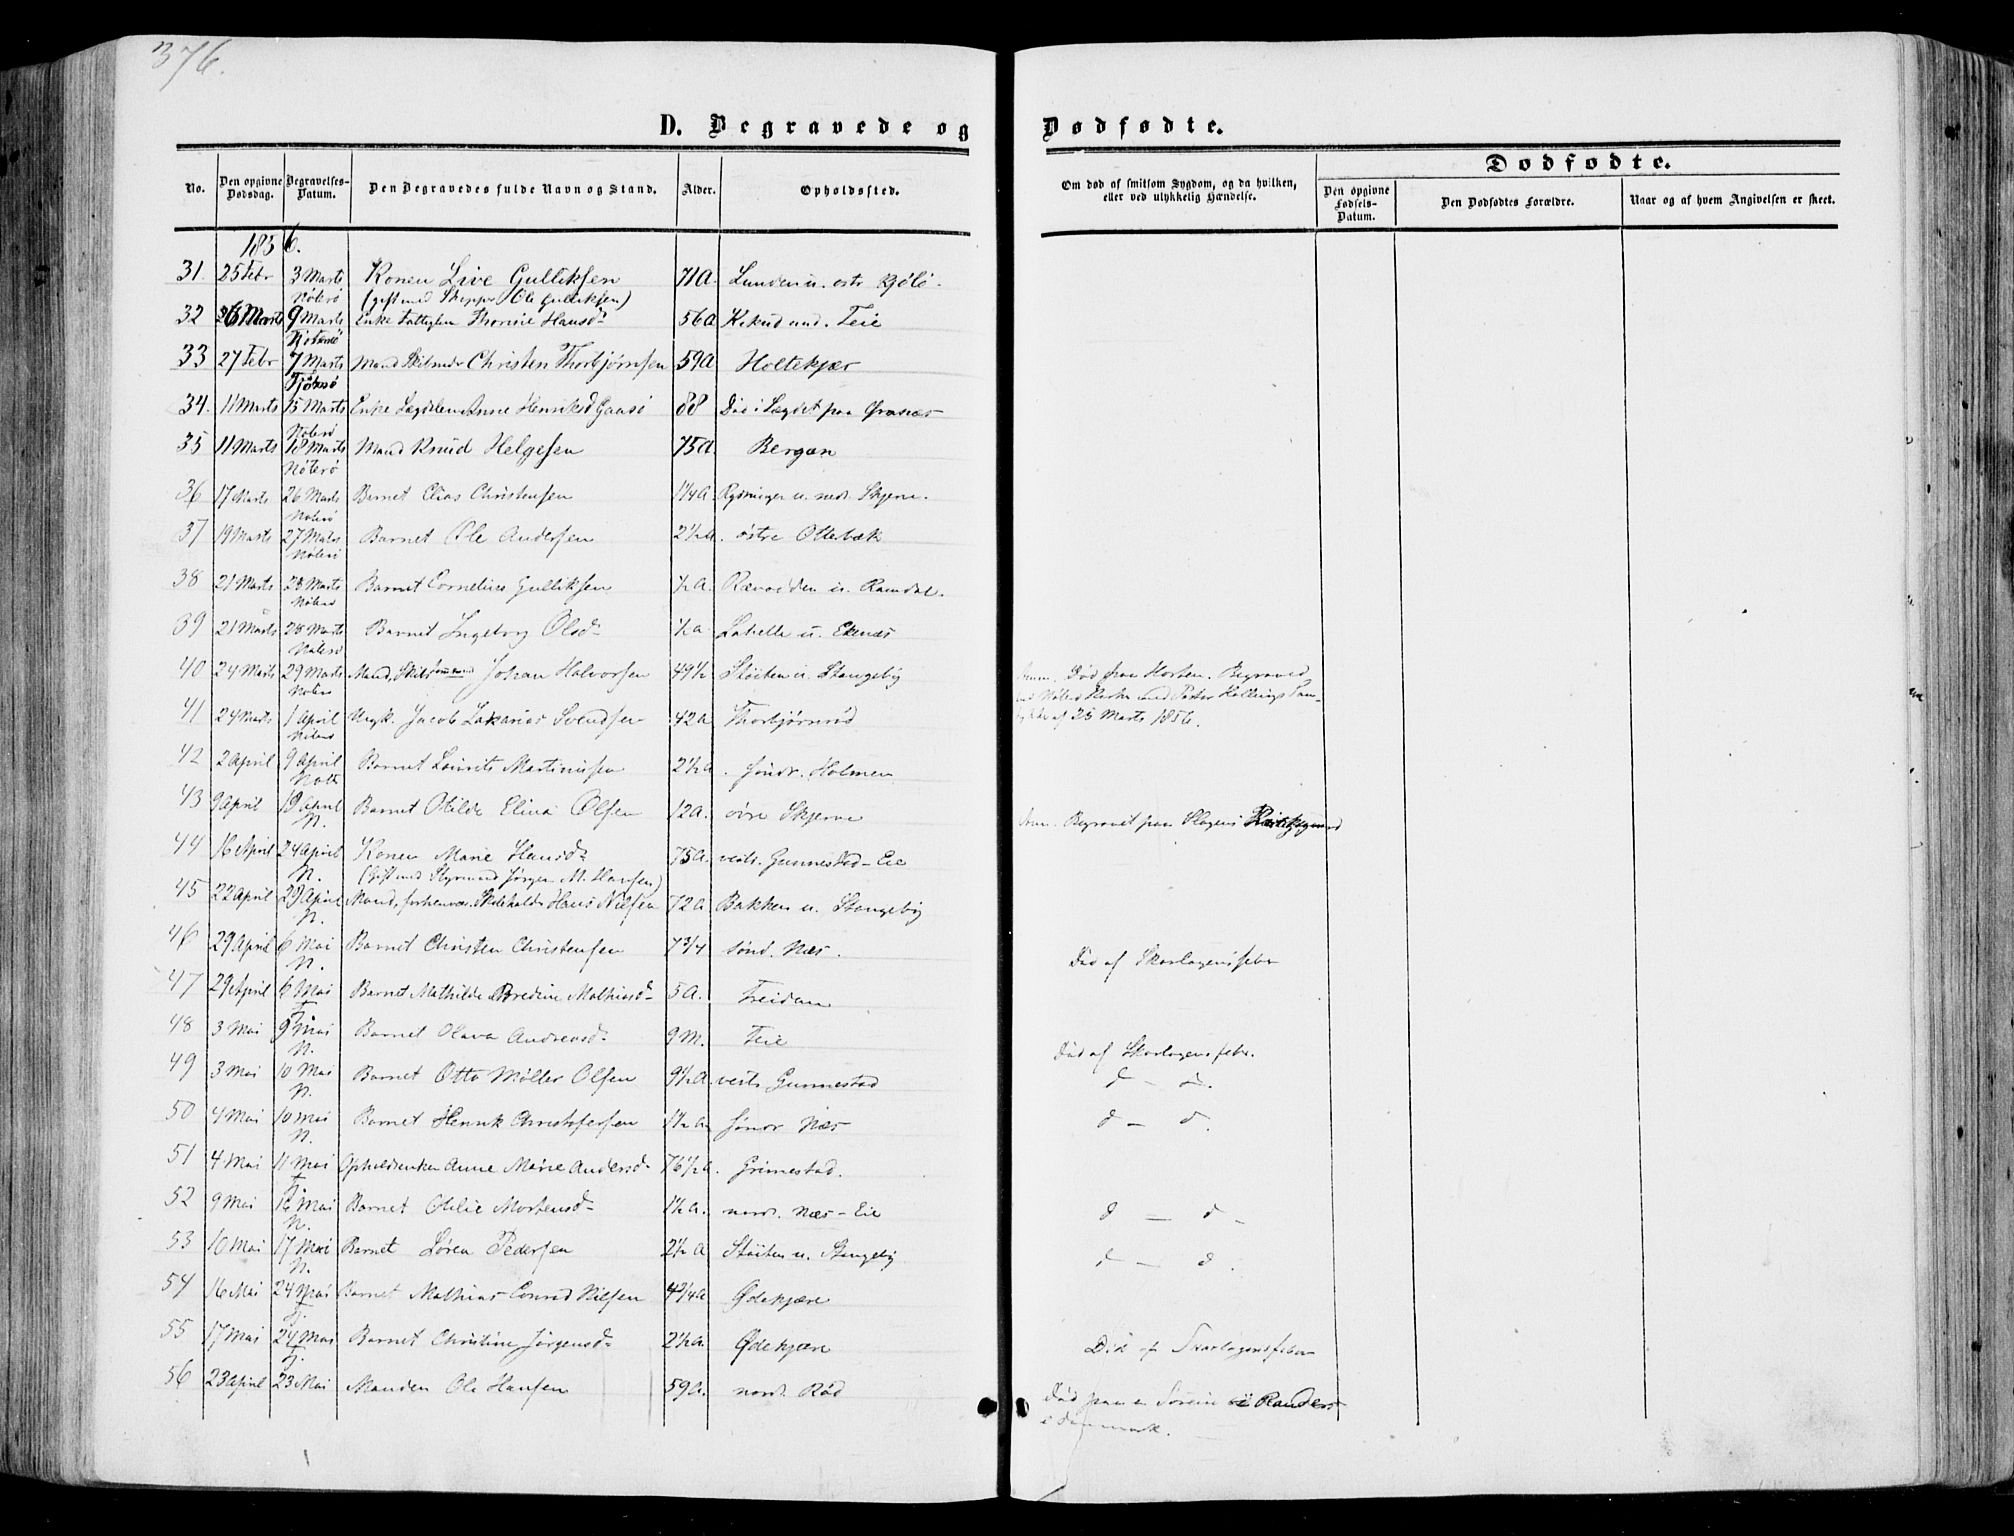 376.
D. Begravede og Dødfødte.
Dødfødte.
No. Den opgivne Dødsdag. Begravelses-Datum. Den Begravedes fulde Navn og Stand. Alder. Opholdssted. Om død af smitsom Sygdom, og da hvilken, eller ved ulykkelig Hændelse. Den opgivne Fødsels-Datum. Den Dødfødtes Forældre. Naar og af hvem Angivelsen er skeet.
1856.
31. 25 Febr 3 Marts Nøterø Konen Live Gulliksen 71 a. Lunden u. østr. Kjølø.
(gift med Skipper Ole Gulliksen)
32 26 Marts 9 Marts Enke Fattiglem Thomie Hansdr 56 a und. Teie
33 27 Febr 7 Marts Mand Christen Thorbjørnsen 59 a Holtekjær
34. 11 Marts 15 Marts Enke Lægdslem Anne Henriksd Gaasø 88 Død i Lægdet paa
35 11 Marts 18 Marts Nøterø Mand Knud Helgesen 75 a. Bergan
36 17 Marts 26 Marts Nøterø Barnet Elias Christensen 1 1/4 a. Rydninger u. nedr. Skjerve.
37 19 Marts 27 Marts Nøterø Barnet Ole Andersen 2 1/2 a. østre Ottebæk
38 21 Marts 28 Marts Nøterø Barnet Cornelius Gulliksen 1/2 a. u. Ramdal.
39 21 Marts 28 Marts Nøterø Barnet Ingeborg Olsdr 1/2 a. Labelle u. Ekenæs
40 24 Marts 29 Marts Nøterø Mand, Johan Halvorsen 49 1/2 Støiten u. Stangeby Anm. Død paa Horten. Begraved
41 24 Marts 1 April Nøterø Ungk. Jacob Zakarias Svendsen 42 a Thorbjørnrød af 25 Marts 1856.
42 2 April 9 April Nøtt Barnet Laurits Martinusen 2 1/2 a. søndr. Holmen
43 9 April 19 April N. Barnet Otilde Elina Olsen 12 a. øvre Skjerve Anm. Begravet paa Slagens
44 16 April 24 April N. Konen Marie Hansdr 75 a. vestr. Gunnestad-Eie
(Gift med Styrmand Jørgen M. Hansen)
45 22 April 29 April N. Mand, forhenvær. Skoleholder Hans Nilsen 72 a Bakken u. Stangeby
46 29 April 6 Mai N. Barnet Christen Christensen 7 3/4 sønd. Næs. Død af Skarlagensfeber
47 29 April 6 Mai T. Barnet Mathilde Bredine Mathiasdr 5 a. Treidene
48 3 Mai 9 Mai N. Barnet Olava Andreasdr 9 M. Teie Død af Skarlagensfeber.
49 3 Mai 10 Mai N. Barnet Otto Møller Olsen 9 1/2 a vestr. Gunnestad d - d.
50 4 Mai 10 Mai N. Barnet Henrik Christofersen 1 1/2 a. søndr Næs d - d.
51 4 Mai 11 Mai T. Opholdsenken Anne Marie Andersdr 76 1/2 a. Grimestad.
52 9 Mai 16 Mai N. Barnet Othilie Mortensdr 1 1/2 a. nordr. Næs-Eie d - d
53 10 Mai 17 Mai N. Barnet Søren Pedersen 2 1/2 a Støiten u. Stangeby d - d.
54 16 Mai 24 Mai T. Barnet Mathias Conrad Nilsen 4 3/4 a Ødekjære
55 17 Mai 24 Mai T. Barnet Christine Jørgensdr 2 1/2 a. Ødekjære Død af Skarlagensfeber
56 23 April 23 Mai Manden Ole Hansen 59 a. nordr. Rød Død paa en i Randers
i Danmark.